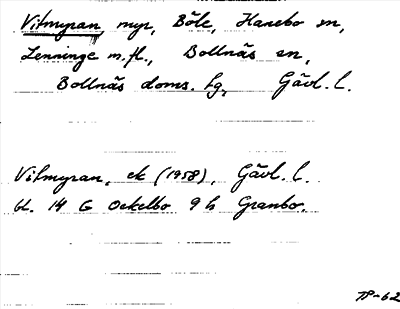 Vitmyran, myr, Böle, Hanebo sn,
Lenninge m.fl., Bollnäs sn,
Bollnäs doms. hg, Gävl. l.
Vitmyran, ek (1958), Gävl. l.
bl. 14 G Ockelbo 9 h Granbo.
TP-62